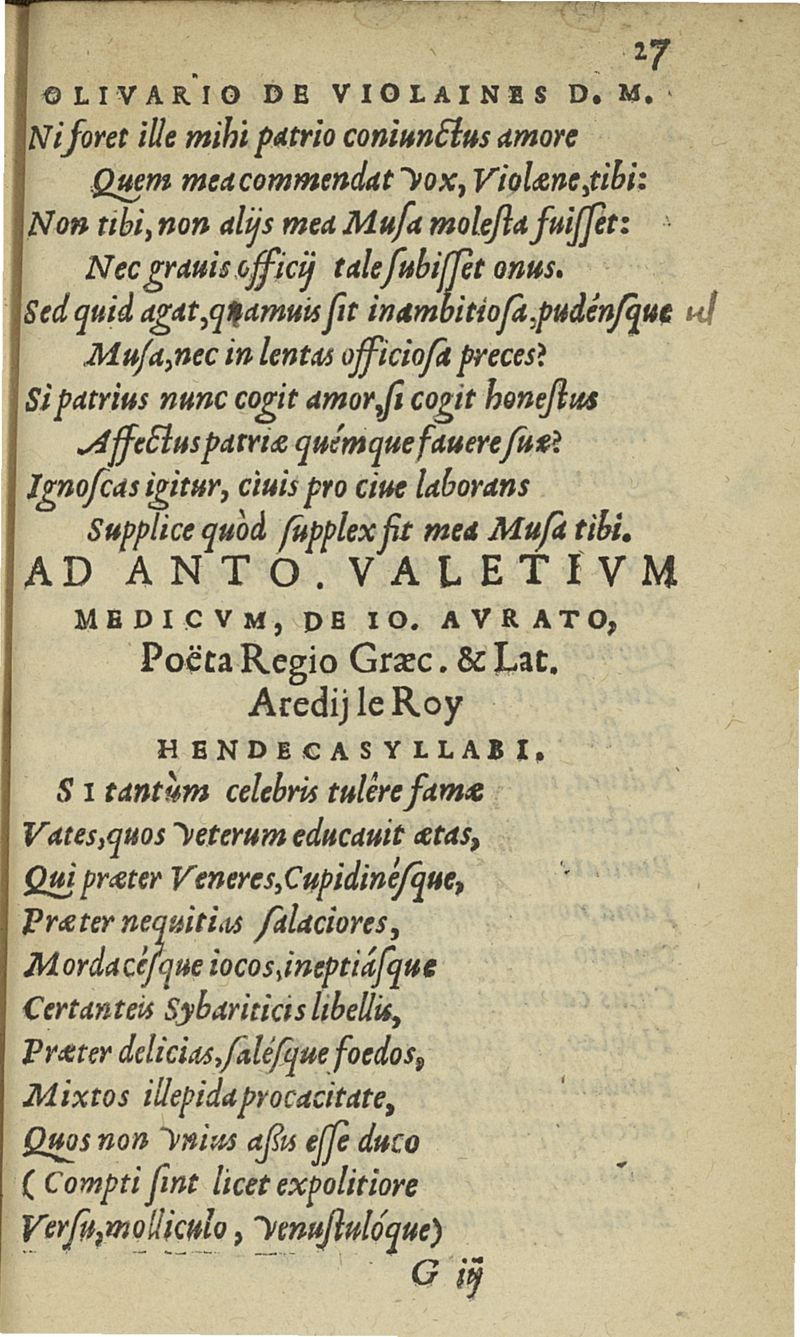 27
OLIVARIO DE VIOLAINES D. M.
Ni foret ille mihi patrio coniunctus amore
Quem mea commendat vox, Violæne, tibi:
Non tibi, non alijs mea Musa molesta fuisset:
Nec grauis officij tale subisset onus.
Sed quid agat, quamuis sit inambitiosa, pudénsque
Musa, nec in lentas officiosa preces?
Si patrius nunc cogit amor, si cogit honestus
Affectus patriæ quémque fauere suæ?
Ignoscas igitur, ciuis pro ciue laborans
Supplice quòd supplex fit mea Musa tibi.
AD ANTO. VALETIVM
MEDICVM, DE IO. AVRATO,
Poëta Regio Græc. & Lat.
Aredij le Roy
HENDECASYLLABI.
SI tantùm celebris tulêre famæ
Vates, quos veterum educauit ætas,
Qui præter Veneres, Cupidinésque,
Præter nequitias salaciores,
Mordacésque iocos, ineptiásque
Certanteis Sybariticis libellis,
Præter delicias, salésque foedos,
Mixtos illepida procacitate,
Quos non vnius aßis esse duco
(Compti sint licet expolitiore
Versu, molliculo, venustulóque)
G iij